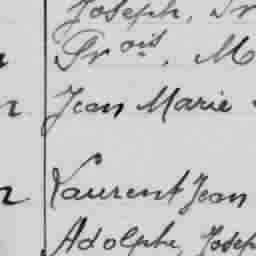 Joseph, Fr
Frois, M
Jean Marie
Laurent Jean
Adolphe, Josep